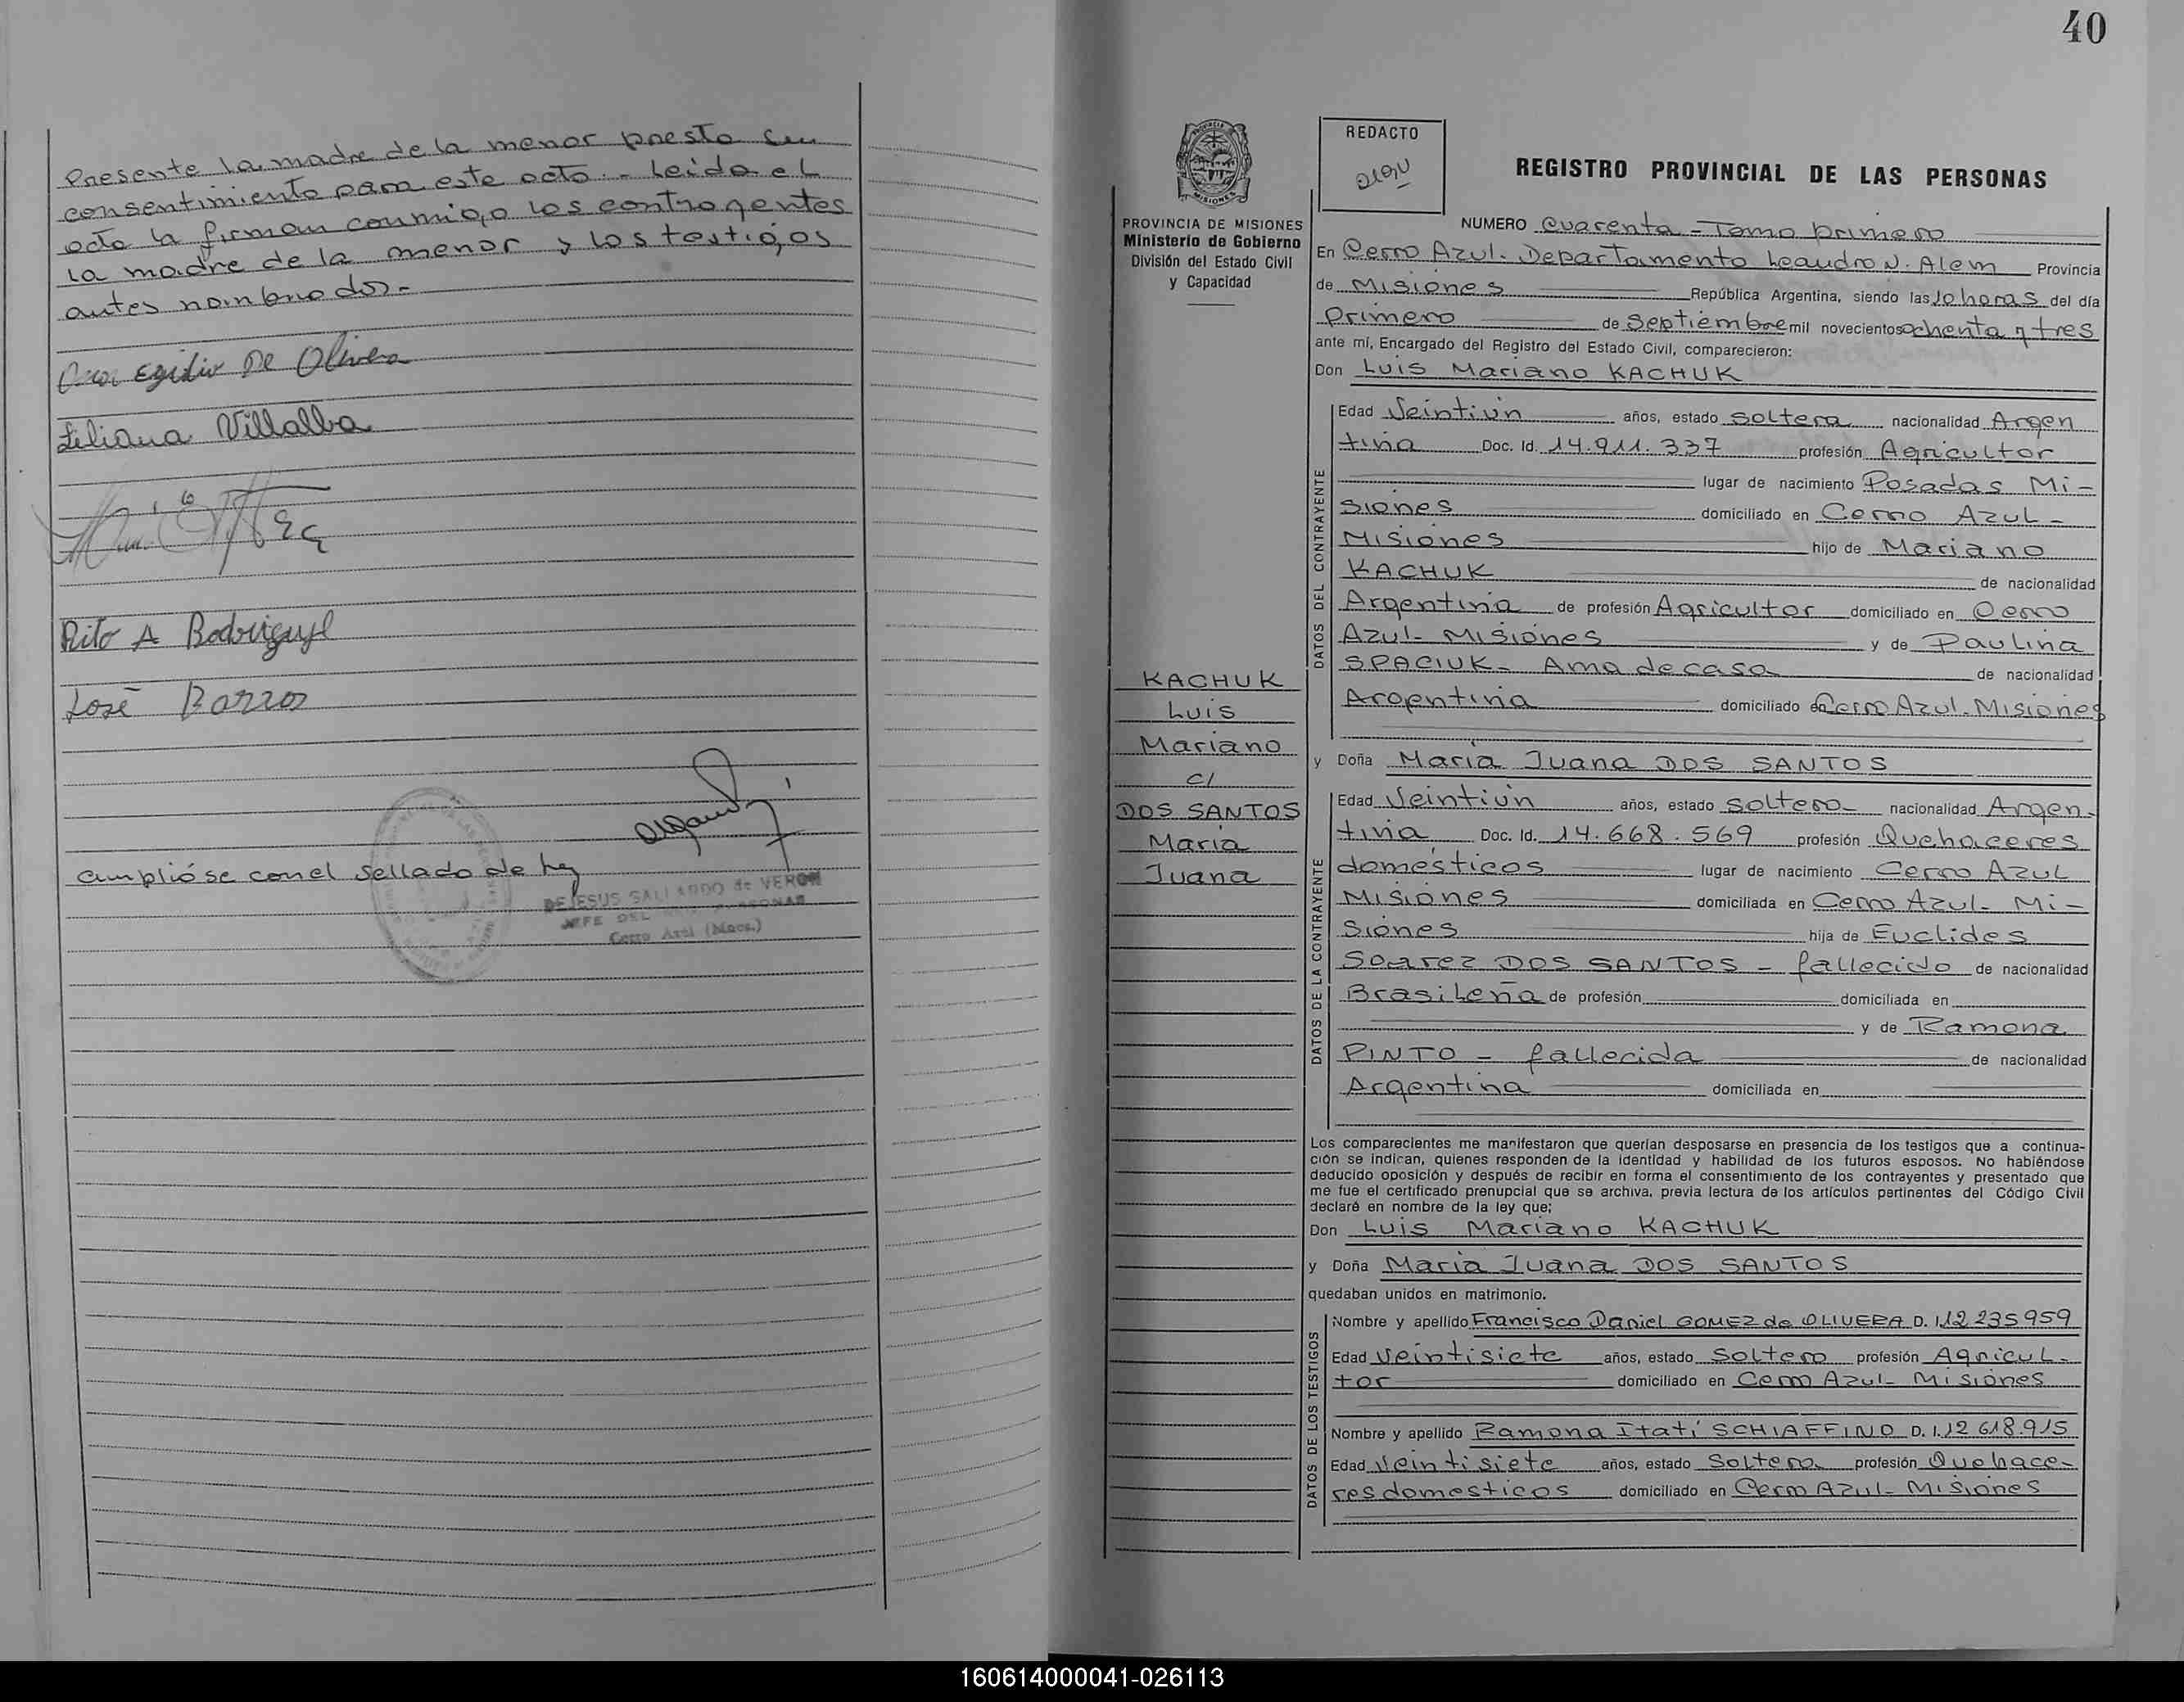 Presente la madre de la menor presta su
consentimiento para este acto.- Leida el
acta la firman conmigo los contrayentes
la madre de la menor y los testigos
antes nombrados.-
Egidio De Olivera
Liliana Villalba
Rito A Rodriguez
José Barros
Cumplióse con el sellado de ley
DEJESUS GALLARDO de VERON
JEFE DEL PERSONAS
Cerro Azul (Mnes.)
40
PROVINCIA DE MISIONES
Ministerio de Gobierno
División del Estado Civil
y Capacidad
KACHUK
Luis
Mariano
c/
DOS SANTOS
Maria
Juana
REDACTO
REGISTRO PROVINCIAL DE LAS PERSONAS
NUMERO Cuarenta - Tomo primero
En Cerro Azul. Departamento Leandro N. Alem Provincia
de Misiones República Argentina, siendo las 10 horas del día
Primero de Septiembre mil novecientos ochenta y tres
ante mí, Encargado del Registro del Estado Civil, comparecieron:
Don Luis Mariano KACHUK
DATOS DEL CONTRAYENTE
Edad Veintiún años, estado soltera nacionalidad Argen
tina Doc. Id. 14.911.337 profesión Agricultor
lugar de nacimiento Posadas Mi-
siones domiciliado en Cerro Azul-
Misiones hijo de Mariano
KACHUK de nacionalidad
Argentina de profesión Agricultor domiciliado en Cerro
Azul- Misiones y de Paulina
SPACIUK- Ama de casa de nacionalidad
Argentina domiciliado en Cerro Azul-Misiones
y Doña Maria Juana DOS SANTOS
DATOS DE LA CONTRAYENTE
Edad Veintiún años, estado soltera- nacionalidad Argen-
tina Doc. Id. 14.668.569 profesión Quehaceres
domésticos lugar de nacimiento Cerro Azul
Misiones domiciliada en Cerro Azul- Mi-
siones hija de Euclides
Soarez DOS SANTOS - fallecido de nacionalidad
Brasileña de profesión domiciliada en
y de Ramona
PINTO - fallecida de nacionalidad
Argentina domiciliada en
Los comparecientes me manifestaron que querían desposarse en presencia de los testigos que a continua-
ción se indican, quienes responden de la identidad y habilidad de los futuros esposos. No habiéndose
deducido oposición y después de recibir en forma el consentimiento de los contrayentes y presentado que
me fue el certificado prenupcial que se archiva, previa lectura de los artículos pertinentes del Código Civil
declaré en nombre de la ley que;
Don Luis Mariano KACHUK
y Doña Maria Juana DOS SANTOS
quedaban unidos en matrimonio.
DATOS DE LOS TESTIGOS
Nombre y apellido Francisco Daniel GOMEZ de OLIVERA D. I. 12 235 959
Edad veintisiete años, estado Soltero profesión Agricul-
tor domiciliado en Cerro Azul- Misiones
Nombre y apellido Ramona Itatí SCHIAFFINO D. I. 12 618.915
Edad Veintisiete años, estado Soltera profesión Quehace-
res domesticos domiciliado en Cerro Azul- Misiones
160614000041-026113